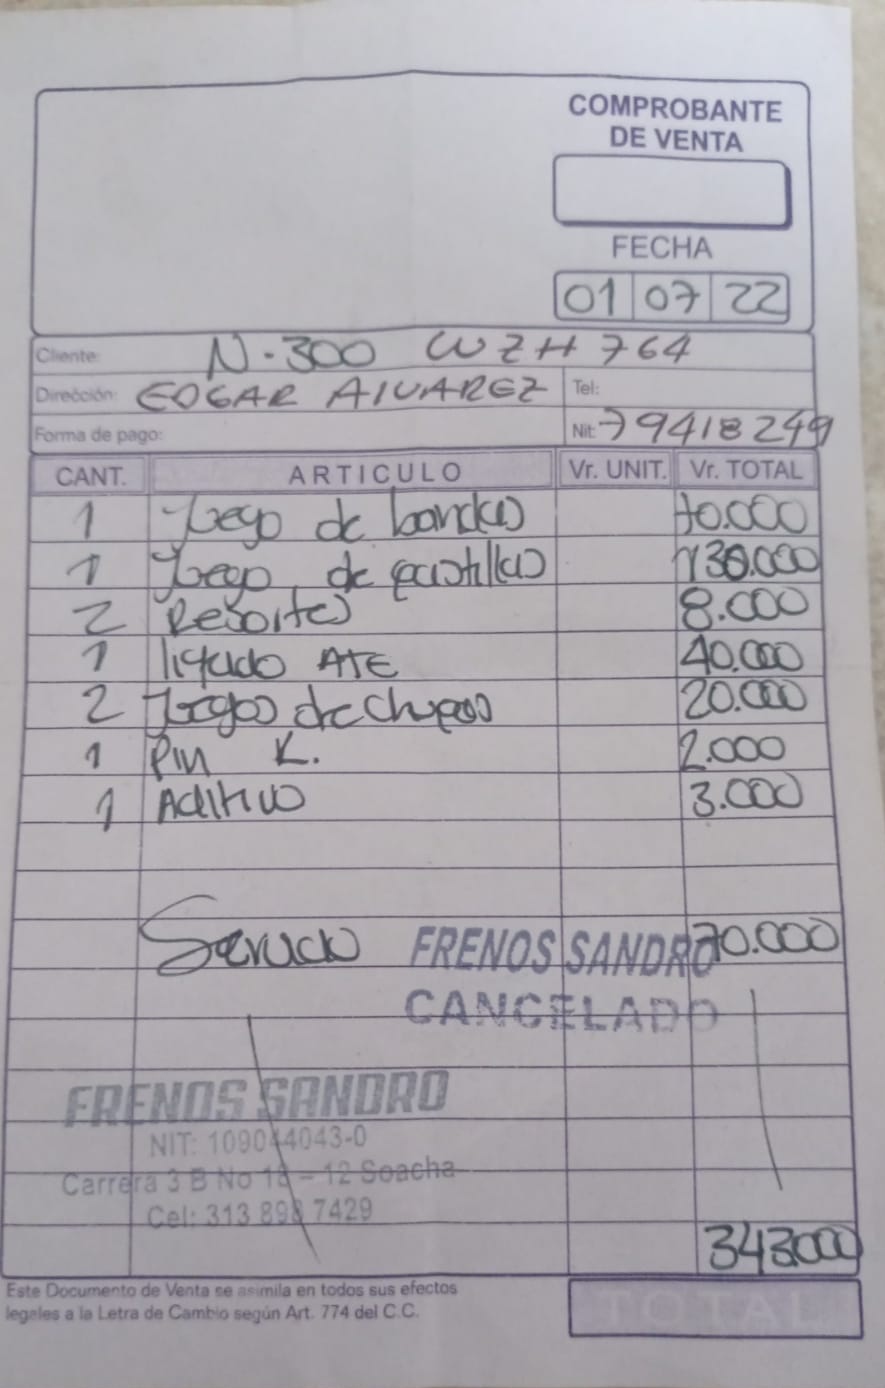 COMPROBANTE
DE VENTA
FECHA
01 07 22
Cliente: N-300 WZH 764
Dirección: EDGAR ALVAREZ Tel:
Forma de pago: Nit: 79418249
CANT. ARTICULO Vr. UNIT. Vr. TOTAL
1 Juego de bandas 70.000
1 Juego de pastillas 130.000
2 Resortes 8.000
1 liquido ATE 40.000
2 Juegos de chupas 20.000
1 Pin K. 2.000
1 Aditivo 3.000
Servicio 70.000
FRENOS SANDRO
CANCELADO
FRENOS SANDRO
NIT: 109044043-0
Carrera 3 B No 18 - 12 Soacha
Cel: 313 898 7429
343.000
Este Documento de Venta se asimila en todos sus efectos
legales a la Letra de Cambio según Art. 774 del C.C.
TOTAL